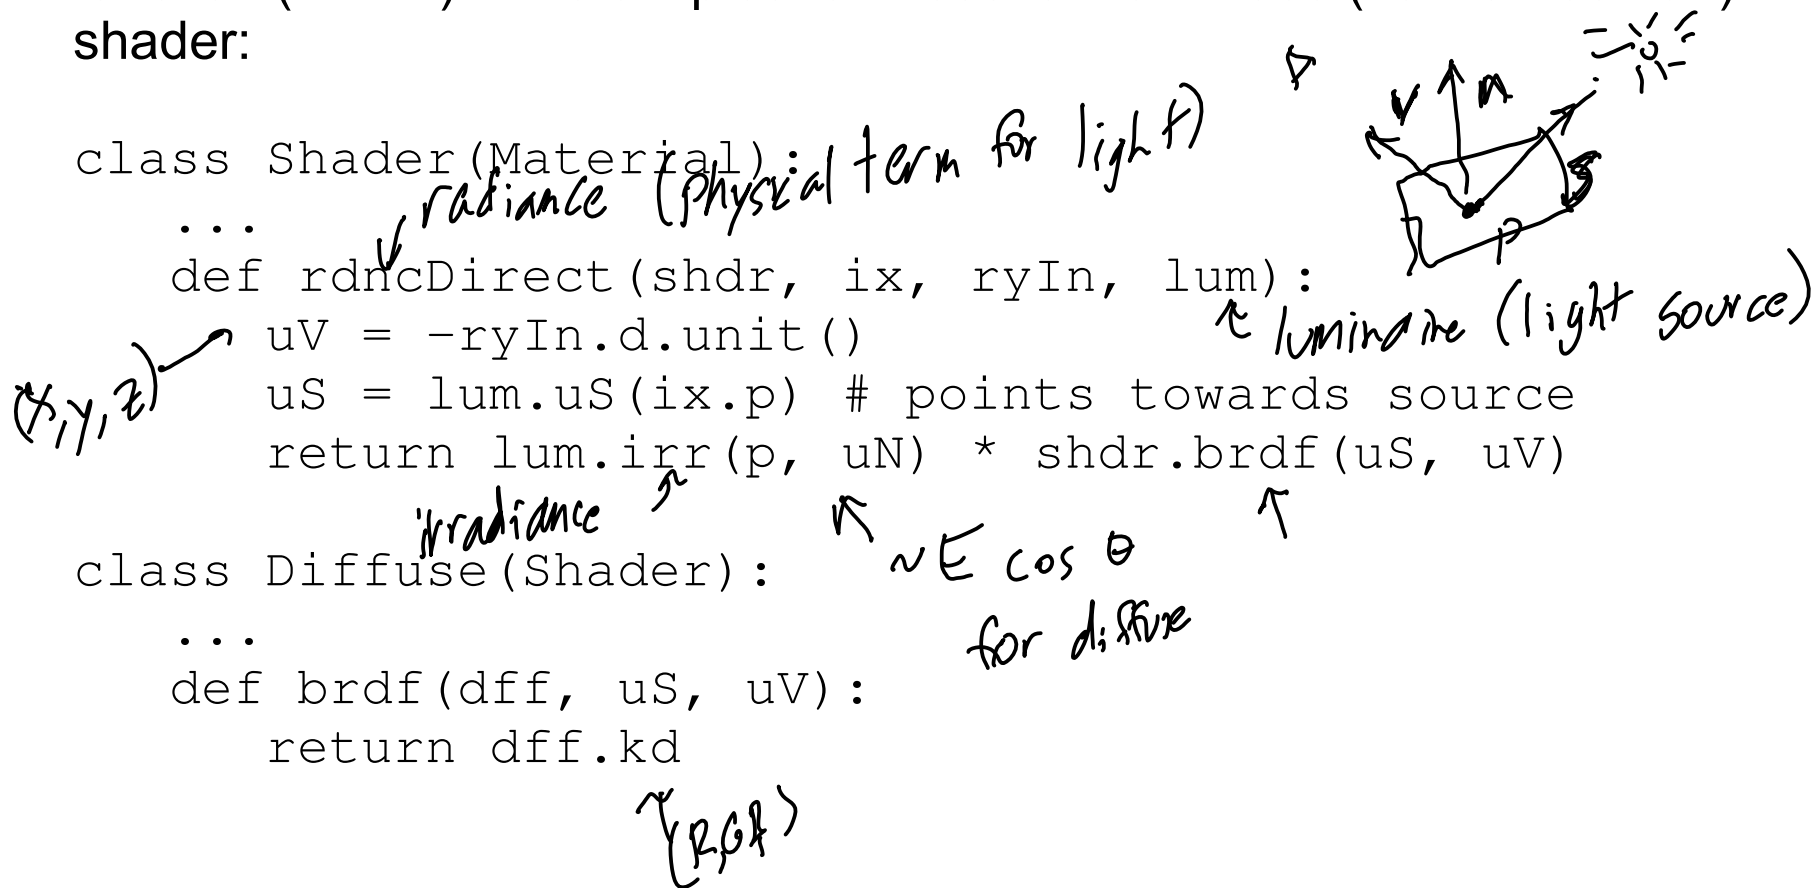 shader:
class Shader(Material):
radiance (physical term for light)
...
def rdncDirect(shdr, ix, ryIn, lum):
luminaire (light source)
uV = -ryIn.d.unit()
(x,y,z)
uS = lum.uS(ix.p) # points towards source
return lum.irr(p, uN) * shdr.brdf(uS, uV)
irradiance
~E cos θ
for diffuse
class Diffuse(Shader):
...
def brdf(dff, uS, uV):
return dff.kd
V n
S
P